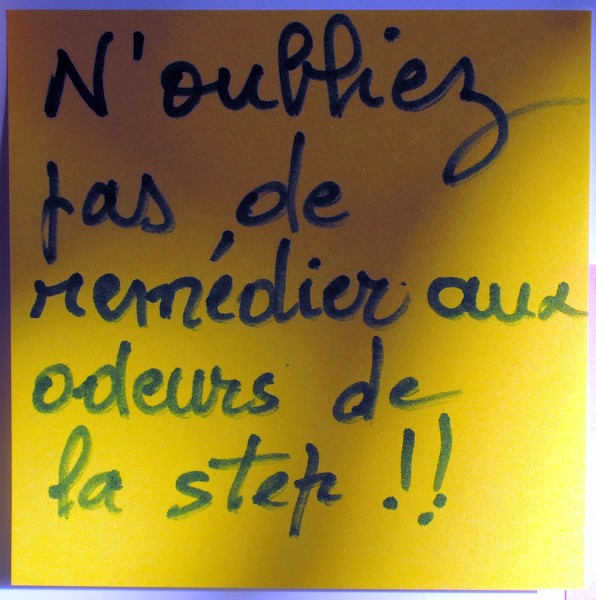 N'oubliez
pas de
remédier aux
odeurs de
la step !!